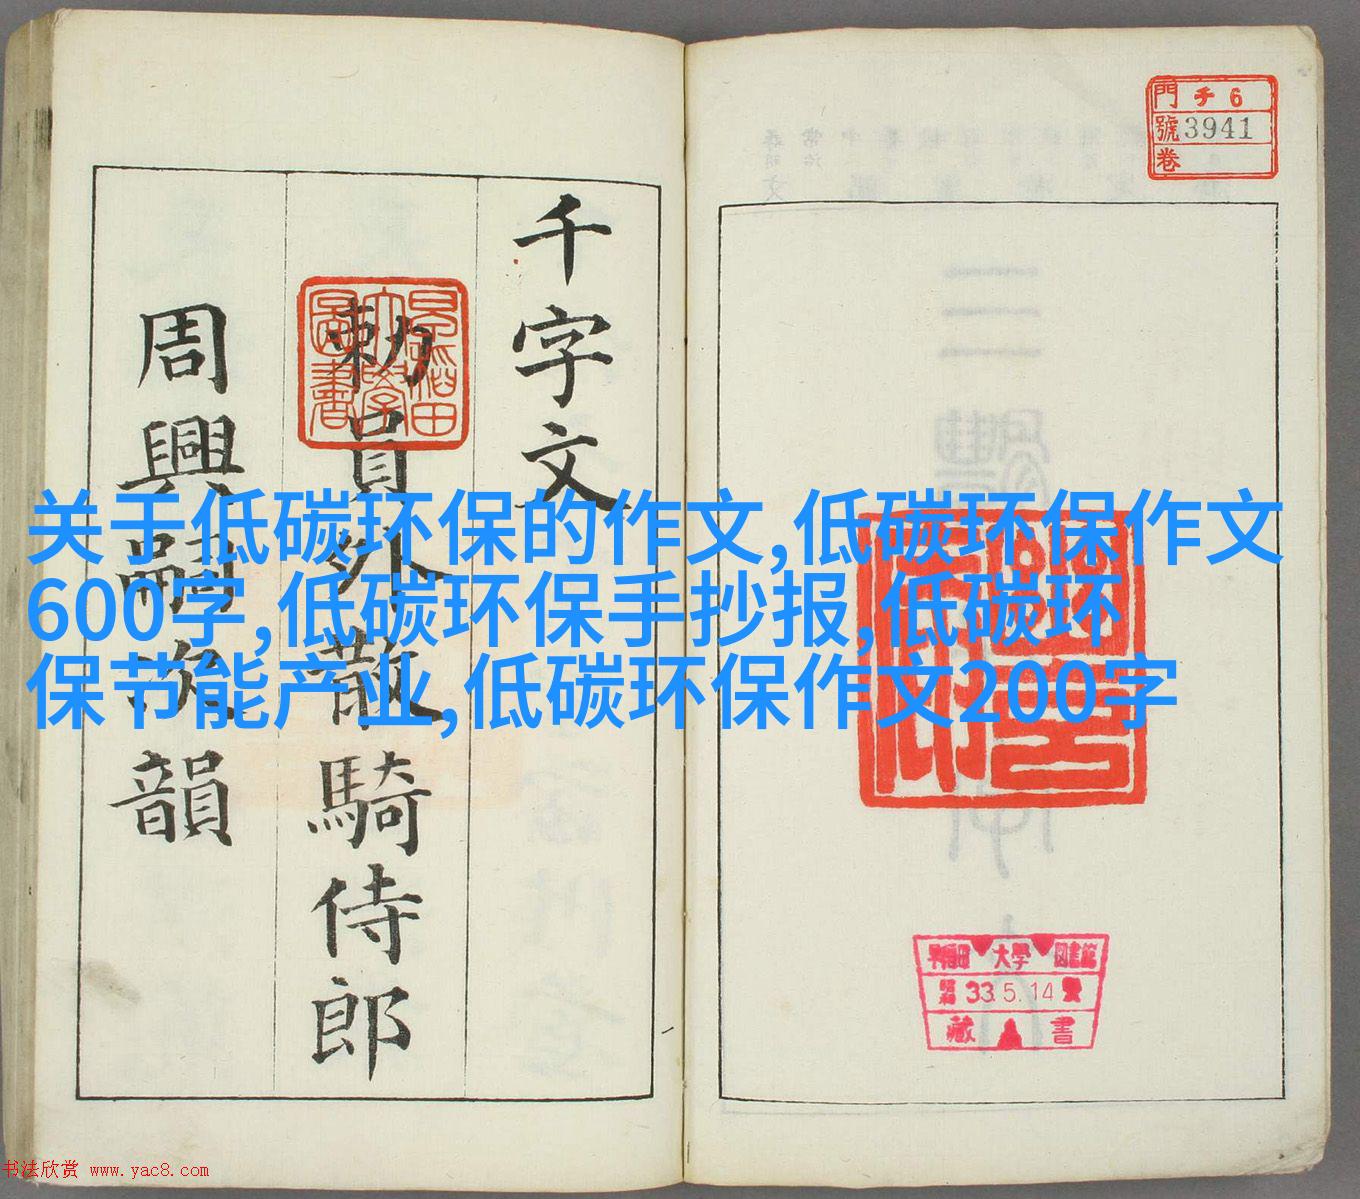 千字文
勅員外散騎侍郎
周興嗣次韻
早稲田
大學
圖書
門 チ 6
號 3941
卷
关于低碳环保的作文,低碳环保作文
600字,低碳环保手抄报,低碳环
保节能产业,低碳环保作文200字
早稲田 大學 図書館
昭和 33.5.14
藏 書
书法欣赏 www.yac8.com